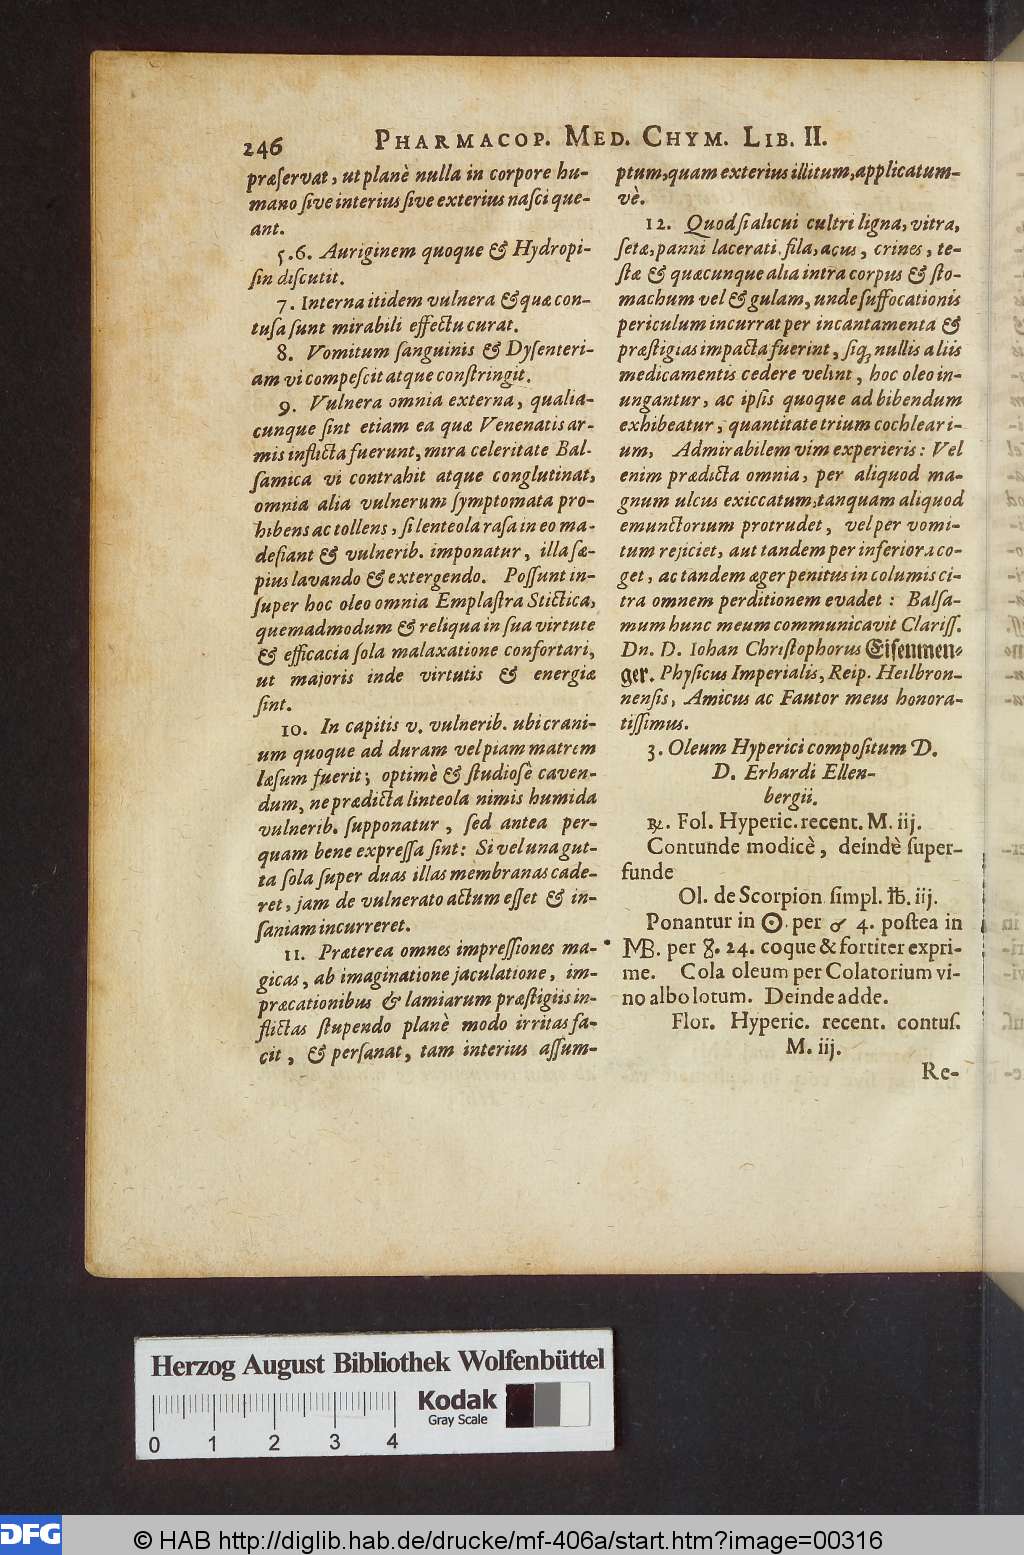 246 PHARMACOP. MED. CHYM. LIB. II.
præſervat, ut planè nulla in corpore hu-
mano ſive interius ſive exterius naſci que-
ant.
5. 6. Auriginem quoque & Hydropi-
ſin diſcutit.
7. Interna itidem vulnera & quæ con-
tuſa ſunt mirabili effectu curat.
8. Vomitum ſanguinis & Dyſenteri-
am vi compeſcit atque conſtringit.
9. Vulnera omnia externa, qualia-
cunque ſint etiam ea quæ Venenatis ar-
mis inflicta fuerunt, mira celeritate Bal-
ſamica vi contrahit atque conglutinat,
omnia alia vulnerum ſymptomata pro-
hibens ac tollens, ſi lenteola raſa in eo ma-
deſiant & vulnerib. imponatur, illa ſæ-
pius lavando & extergendo. Poſſunt in-
ſuper hoc oleo omnia Emplaſtra Stictica,
quemadmodum & reliqua in ſua virtute
& efficacia ſola malaxatione confortari,
ut majoris inde virtutis & energiæ
ſint.
10. In capitis v. vulnerib. ubi crani-
um quoque ad duram vel piam matrem
læſum fuerit; optimè & ſtudioſè caven-
dum, ne prædicta linteola nimis humida
vulnerib. ſupponatur, ſed antea per-
quam bene expreſſa ſint: Si vel una gut-
ta ſola ſuper duas illas membranas cade-
ret, jam de vulnerato actum eſſet & in-
ſaniam incurreret.
11. Præterea omnes impreſſiones ma-
gicas, ab imaginatione jaculatione, im-
præcationibus & lamiarum præſtigiis in-
flictas ſtupendo planè modo irritas fa-
cit, & perſanat, tam interius aſſum-
ptum, quam exterius illitum, applicatum-
vè.
12. Quod ſi alicui cultri ligna, vitra,
ſetæ, panni lacerati, fila, acus, crines, te-
ſtæ & quæcunque alia intra corpus & ſto-
machum vel & gulam, unde ſuffocationis
periculum incurrat per incantamenta &
præſtigias impacta fuerint, ſiq; nullis aliis
medicamentis cedere velint, hoc oleo in-
ungantur, ac ipſis quoque ad bibendum
exhibeatur, quantitate trium cochleari-
um, Admirabilem vim experieris: Vel
enim prædicta omnia, per aliquod ma-
gnum ulcus exiccatum, tanquam aliquod
emunctorium protrudet, vel per vomi-
tum rejiciet, aut tandem per inferiora co-
get, ac tandem æger penitus in columis ci-
tra omnem perditionem evadet: Balſa-
mum hunc meum communicavit Clariſſ.
Dn. D. Iohan Chriſtophorus Eiſenmen-
ger. Phyſicus Imperialis, Reip. Heilbron-
nenſis, Amicus ac Fautor meus honora-
tiſſimus.
3. Oleum Hyperici compoſitum D.
D. Erhardi Ellen-
bergii.
℞. Fol. Hyperic. recent. M. iij.
Contunde modicè, deindè ſuper-
funde
Ol. de Scorpion ſimpl. ℔. iij.
Ponantur in ☉. per ♂ 4. poſtea in
MB. per 8. 24. coque & fortiter expri-
me. Cola oleum per Colatorium vi-
no albo lotum. Deinde adde.
Flor. Hyperic. recent. contuſ.
M. iij.
Re-
Herzog August Bibliothek Wolfenbüttel
0 1 2 3 4
Kodak
Gray Scale
DFG © HAB http://diglib.hab.de/drucke/mf-406a/start.htm?image=00316